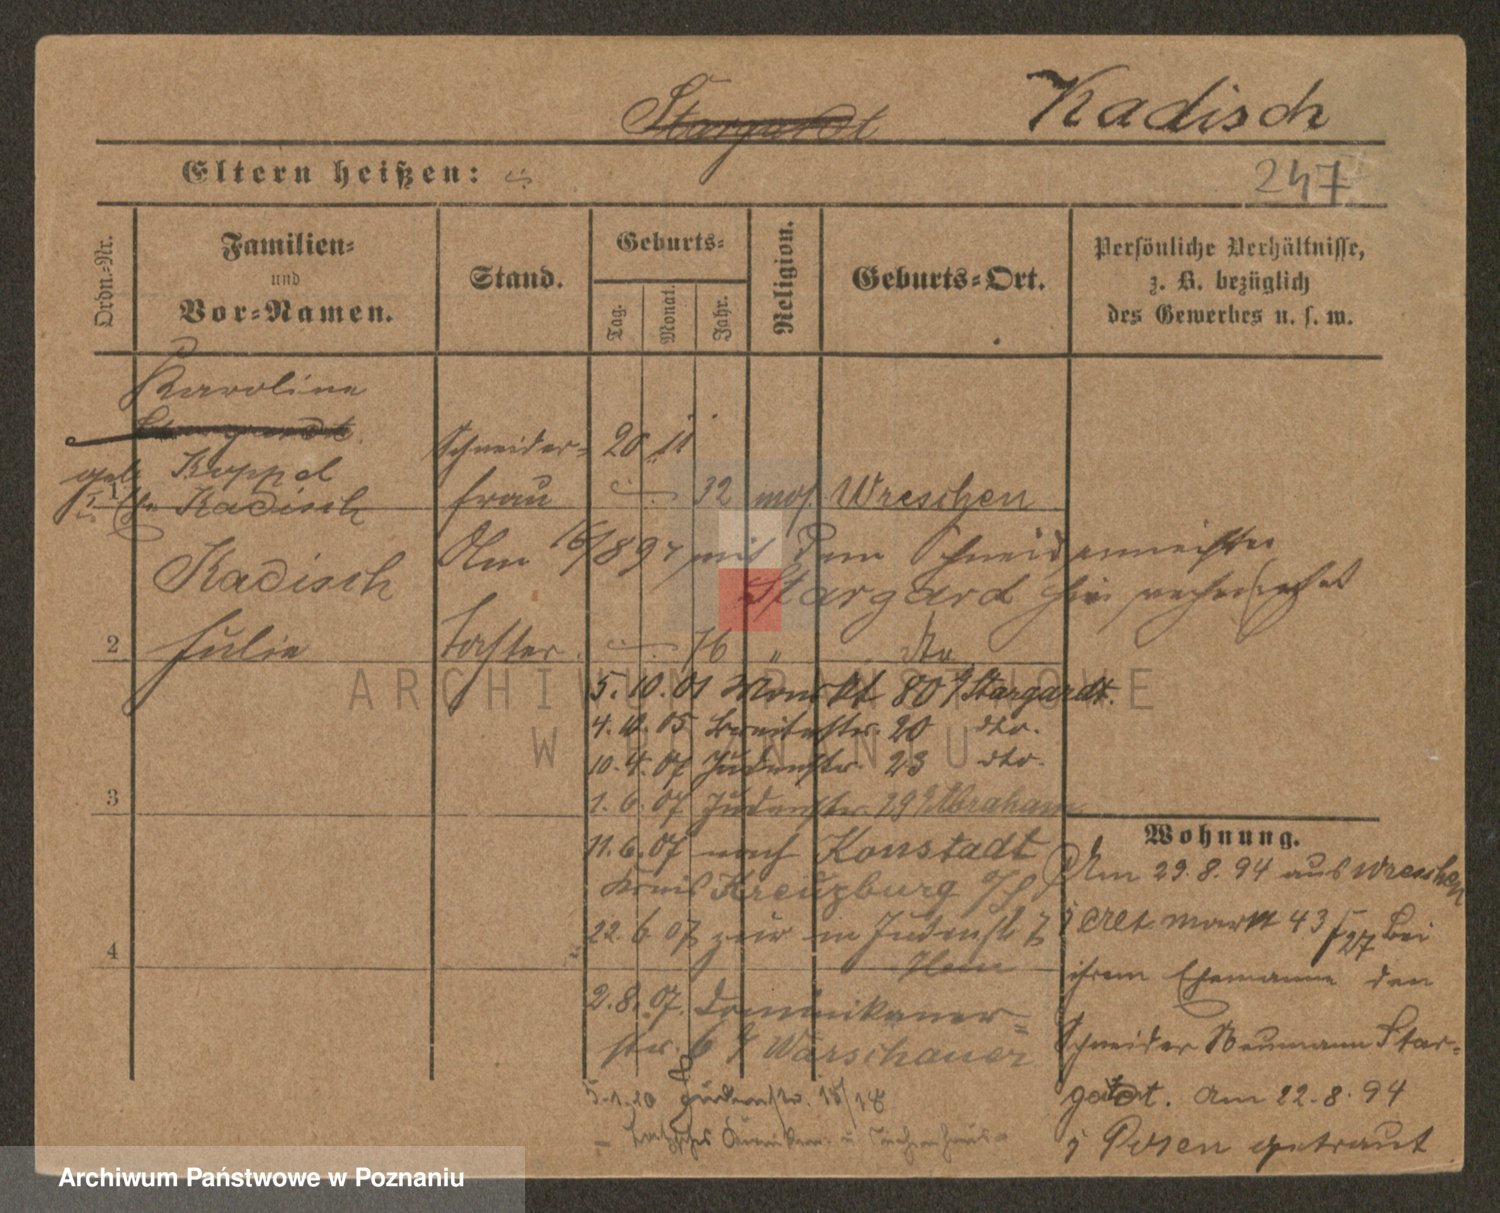 Stargardt
Kadisch
Eltern heißen:
247
Ordn.-Nr.
Familien-
und
Vor-Namen.
Stand.
Geburts-
Tag.
Monat.
Jahr.
Religion.
Geburts-Ort.
Persönliche Verhältnisse,
z. B. bezüglich
des Gewerbes u. s. w.
Karoline
Stargardt
geb. Koppel
1
Kadisch
Schneider-
frau
20 11
32 mos. Wreschen
Am 16/ 97 mit dem Schneidermeister
Stargard hier
Kadisch
2
Julie
Tochter
76 " dto
5. 10. 01 Markt 80 b/ Stargardt.
4. 10. 05 Breitestr. 20 dto.
10. 4. 07 Judenstr. 23 dto.
3
1. 6. 07 Judenstr. 29 b/ Abraham
11. 6. 07 nach Konstadt
Kreis Kreuzburg O/S
22. 6. 07 zur in Judenstr
4
2. 8. 07. Dominikaner-
str. 6 b/ Warschauer
5. 1. 20 Judenstr. 15/18
Wohnung.
Am 29. 8. 94 aus Wreschen
Alt Markt 43 27 bei
ihrem Ehemanne den
Schneider Neumann Star-
gardt. Am 22. 8. 94
i Posen getraut
ARCHIWUM PAŃSTWOWE
W POZNANIU
Archiwum Państwowe w Poznaniu